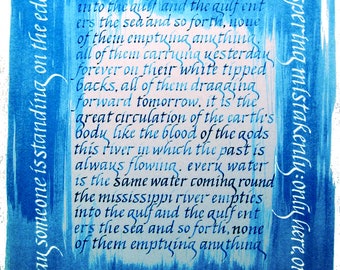 into the gulf and the gulf ent
ers the sea and so forth, none
of them emptying anything,
all of them carrying yesterday
forever on their white tipped
backs, all of them dragging
forward tomorrow. it is the
great circulation of the earth's
body, like the blood of the gods
this river in which the past is
always flowing. every water
is the same water coming round
the mississippi river empties
into the gulf and the gulf ent
ers the sea and so forth, none
of them emptying anything
someone is standing on the ed
pering mistakenly: only here. on